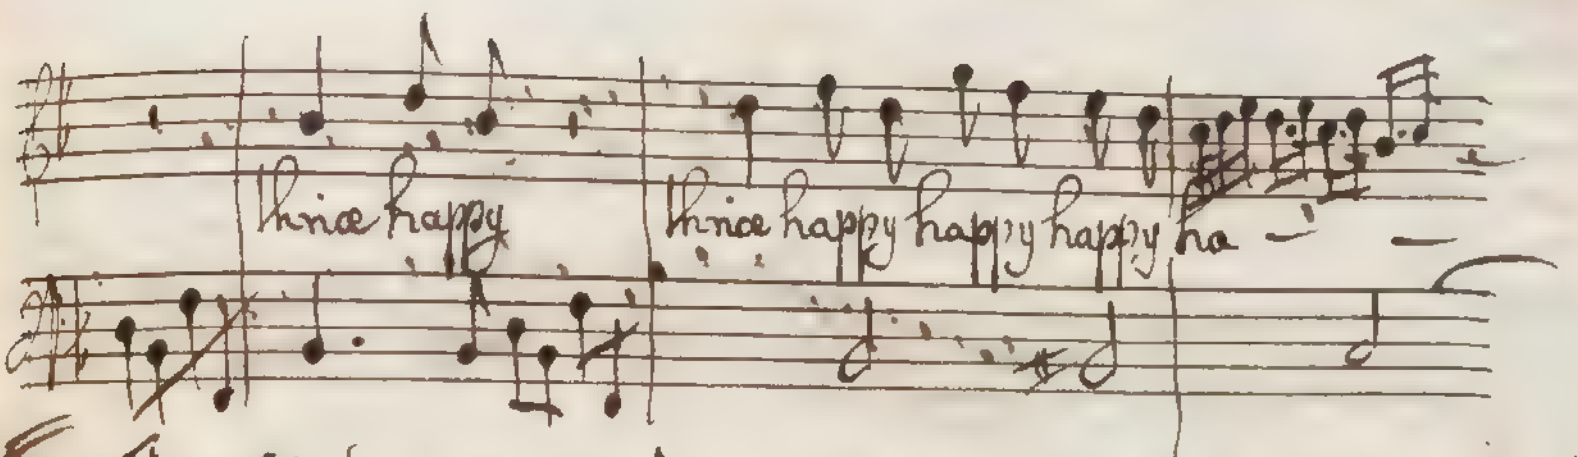 thrice happy thrice happy happy happy ha - -